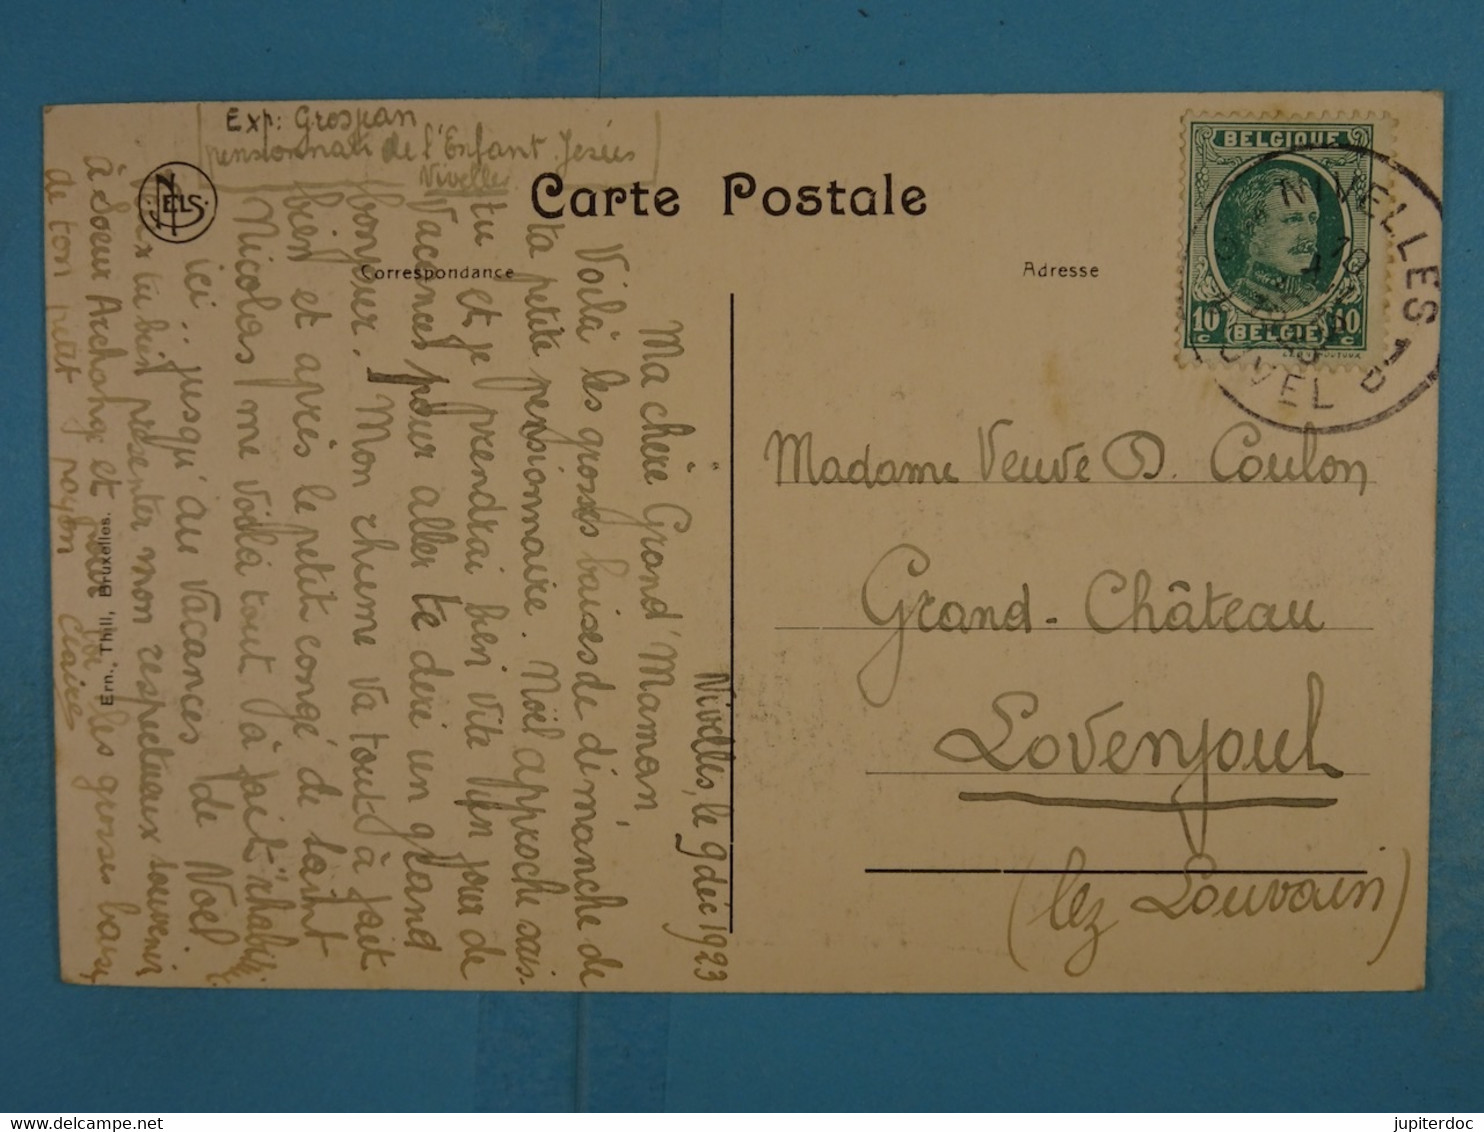 Exp: Grospan
pensionnat de l'Enfant Jésus
Nivelles
Carte Postale
Correspondance
Adresse
NELS
Ern. Thill, Bruxelles.
BELGIQUE
10 c
BELGIE
10 c
NIVELLES
NIJVEL
Nivelles, le 9 déc 1923
Ma chère Grand'Maman,
Voilà les grosses baises de dimanche de
ta petite pensionnaire. Noël approche sais-
tu et je prendrai bien vite l'un jour de
vacances pour aller te dire un grand
bonjour. Mon rhume va tout à fait
bien et après le petit congé de saint
Nicolas me voilà tout à fait "rhabi
ici.. jusqu'au vacances de Noël
Veux tu bien présenter mon respectueux souvenir
à Soeur Archange et pour toi les grosses baises
de ton petit rayon
Claire
Madame Veuve D. Coulon
Grand-Château
Lovenjoul
(lez Louvain)
jupiterdoc